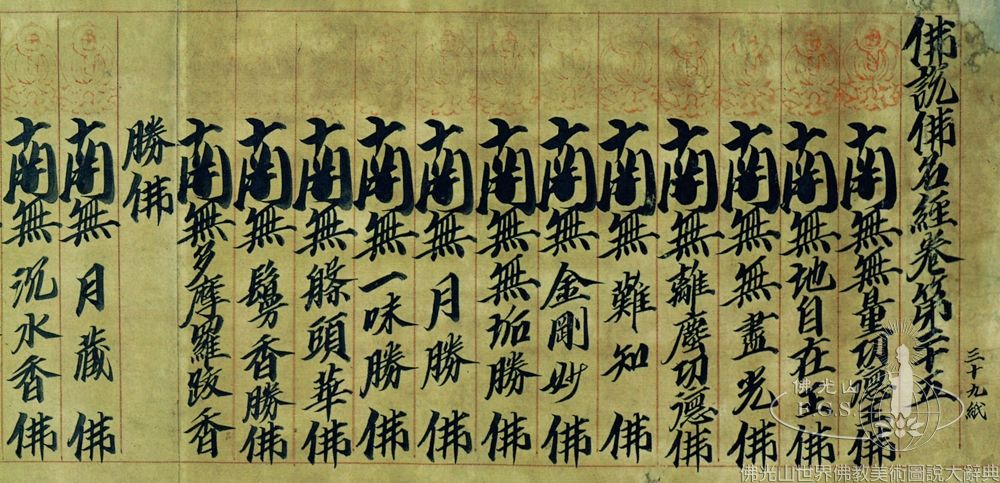 佛説佛名經卷第二十五
三十九紙
南無無量功德王佛
南無地自在王佛
南無無盡光佛
南無離塵功德佛
南無難知佛
南無金剛妙佛
南無無垢勝佛
南無月勝佛
南無一味勝佛
南無頭華佛
南無鬘香勝佛
南無多摩羅跋香
勝佛
南無月藏佛
南無沉水香佛
佛光山
F.G.S.
佛光山世界佛教美術圖說大辭典